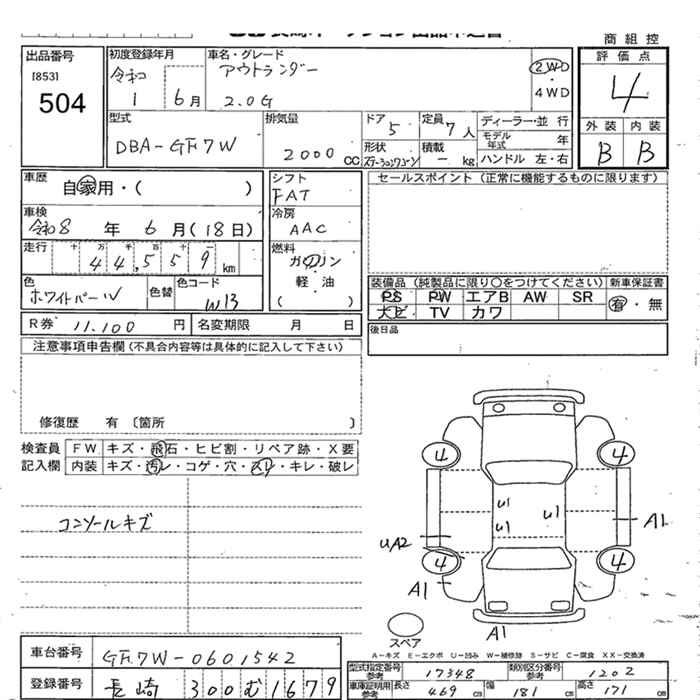 商 組 控
出品番号
[853]
504
初度登録年月
令和
1 6 月
車名・グレード
アウトランダー
2.0G
2WD
・
4WD
評 価 点
4
外 装 内 装
B B
型式
DBA-GF7W
排気量
2000 CC
ドア
5
定員
7 人
形状
ステーションワゴン
積載
- kg
ディーラー・並 行
モデル年式 年
ハンドル 左・右
車歴
自家用・( )
車検
令和8 年 6 月(18日)
走行
十 万 千 百 十 一
44,559 km
色
ホワイトパール
色替
色コード
W13
シフト
FAT
冷房
AAC
燃料
ガソリン
軽 油
( )
セールスポイント(正常に機能するものに限ります)
装備品(純製品に限り〇をつけてください)
新車保証書
PS PW エアB AW SR
ナビ TV カワ
有・無
後日品
R券 11,100 円
名変期限 月 日
注意事項申告欄(不具合内容等は具体的に記入して下さい)
修復歴 有 〔箇所 〕
検査員
記入欄
FW キズ・飛石・ヒビ割・リペア跡・X要
内装 キズ・汚レ・コゲ・穴・スレ・キレ・破レ
コンソールキズ
4 4
U1
U1 U1
A1
UA2
4 4
A1
A1
スペア
A-キズ E-エクボ U-凹み W-補修跡 S-サビ C-腐食 XX-交換済
車台番号 GF7W-0601542
登録番号 長崎 300 む 1679
型式指定番号
参考
17348
類別区分番号
参考
1202
車庫証明用
参考
長さ 469 cm 幅 181 cm 高さ 171 cm